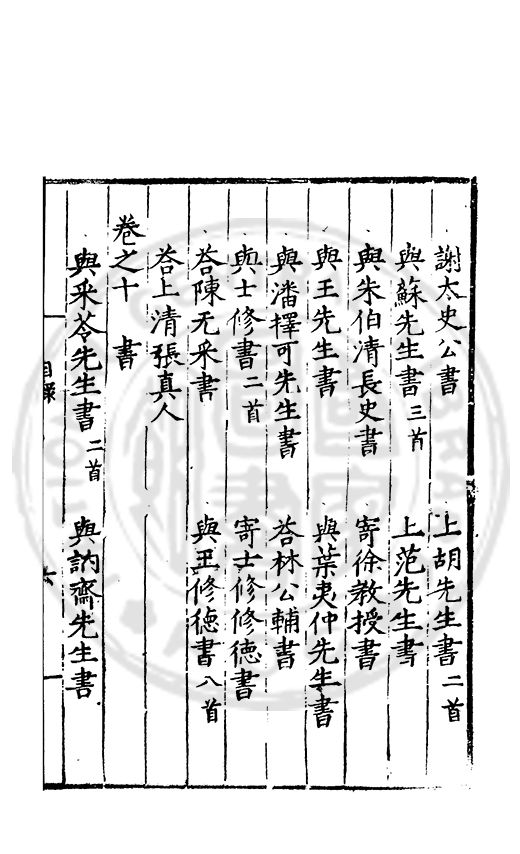 謝太史公書　上胡先生書二首
與蘇先生書三首　上范先生書
與朱伯清長史書　寄徐教授書
與王先生書　與葉夷仲先生書
與潘擇可先生書　荅林公輔書
與士修書二首　寄士修修德書
荅陳元采書　與王修德書八首
荅上清張真人
卷之十　書
與采苓先生書二首　與訥齋先生書
目錄　六